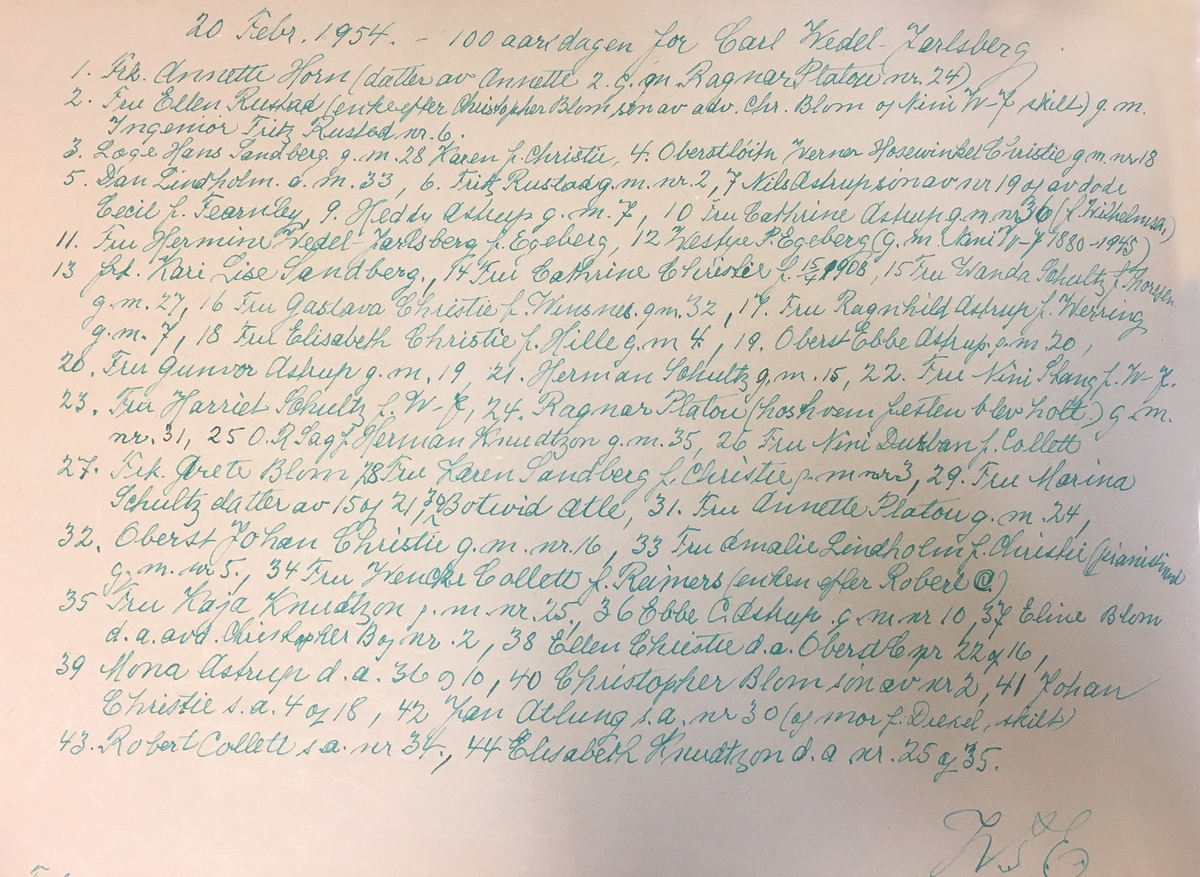 20 Febr. 1954. - 100 aarsdagen for Carl Wedel-Jarlsberg
1. Frk. Annette Horn (datter av Annette 2. g. gn Ragnar Platou nr. 24)
2. Fru Ellen Rustad (enke efter Christopher Blom sön av adv. Chr. Blom og Nini W-J skilt) g. m.
Ingeniör Fritz Rustad nr. 6.
3. Læge Hans Sandberg. g. m. 28 Karen f. Christie, 4. Oberstlöitn Werner Hosewinkel Christie g m. nr 18
5. Dan Lindholm. g. m. 33, 6. Fritz Rustad g. m. nr. 2, 7 Nils Astrup sön av nr 19 og av döde
Cecil f. Fearnley, 9. Heddy Astrup g. m. 7, 10 Fru Cathrine Astrup g. m. nr 36 (f. Wilhelmsen)
11. Fru Hermine Wedel-Jarlsberg f. Egeberg, 12 Westye P. Egeberg (g. m. Nini W-J 1880-1945)
13 frk. Kari Lise Sandberg., 14 Fru Cathrine Christie f. 15/4 1908, 15 Fru Wanda Schultz f. Thoresen
g. m. 27, 16 Fru Gustava Christie f. Winsnes. g m. 32, 17. Fru Ragnhild Astrup f. Werring
g. m. 7, 18 Fru Elisabeth Christie f. Hille g. m. 4, 19. Oberst Ebbe Astrup. g. m. 20,
20. Fru Gunvor Astrup g. m. 19, 21. Herman Schultz g. m. 15, 22. Fru Nini Stang f. W-J.
23. Fru Harriet Schultz f. W-J, 24. Ragnar Platou (hos hvem festen blev holt) g. m.
nr. 31, 25 O. R Sagf. Herman Knudtzon g. m. 35, 26 Fru Nini Durban f. Collett
27. Frk. Grete Blom 28 Fru Karen Sandberg f. Christie g. m nr 3, 29. Fru Marina
Schultz datter av 15 og 21, 30 Botwid Atle, 31. Fru Annette Platou g. m. 24,
32. Oberst Johan Christie g. m. nr. 16, 33 Fru Amalie Lindholm f. Christie (pianistinne)
g. m. nr 5., 34 Fru Wencke Collett f. Reimers (enken efter Robert C.)
35 Fru Kaja Knudtzon g. m. nr. 25, 36 Ebbe C. Astrup. g. m nr 10, 37 Eline Blom
d. a. avd. Christopher B og nr. 2, 38 Ellen Christie d. a. Oberst C nr 22 og 16,
39 Mona Astrup d. a. 36 og 10, 40 Christopher Blom sön av nr 2, 41 Johan
Christie s. a. 4 og 18, 42 Jan Atlung s. a. nr 30 (og mor f. Diesel, skilt)
43. Robert Collett s. a. nr 34., 44 Elisabeth Knudtzon d. a nr. 25 og 35.